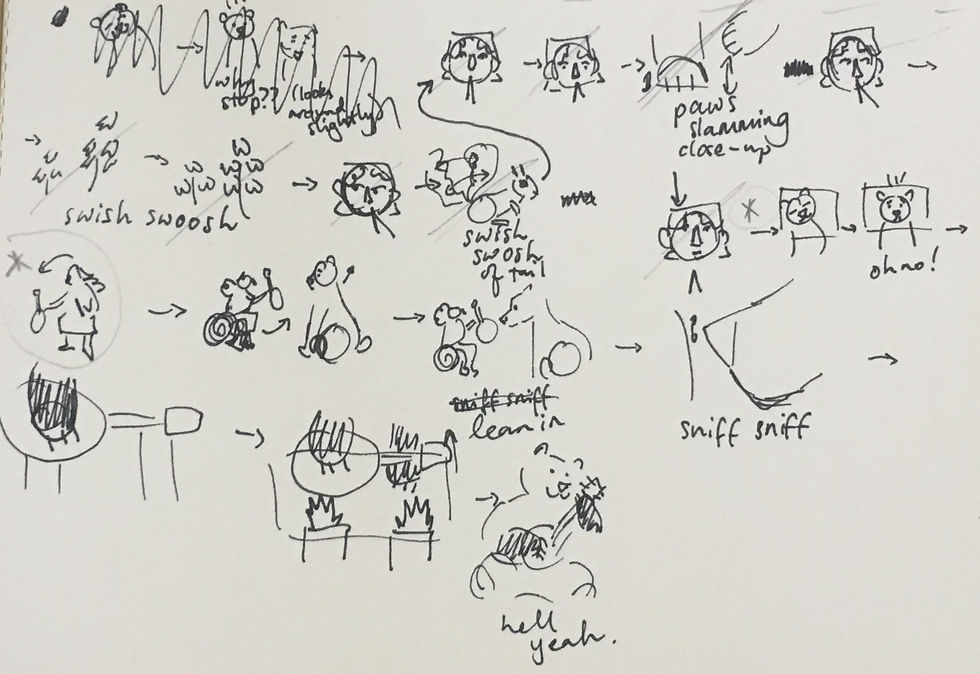 why
stop??
(looks
around
slightly)
paws
slamming
close-up
swish swoosh
swish
swoosh
of tail
oh no!
sniff sniff
lean in
sniff sniff
hell
yeah.